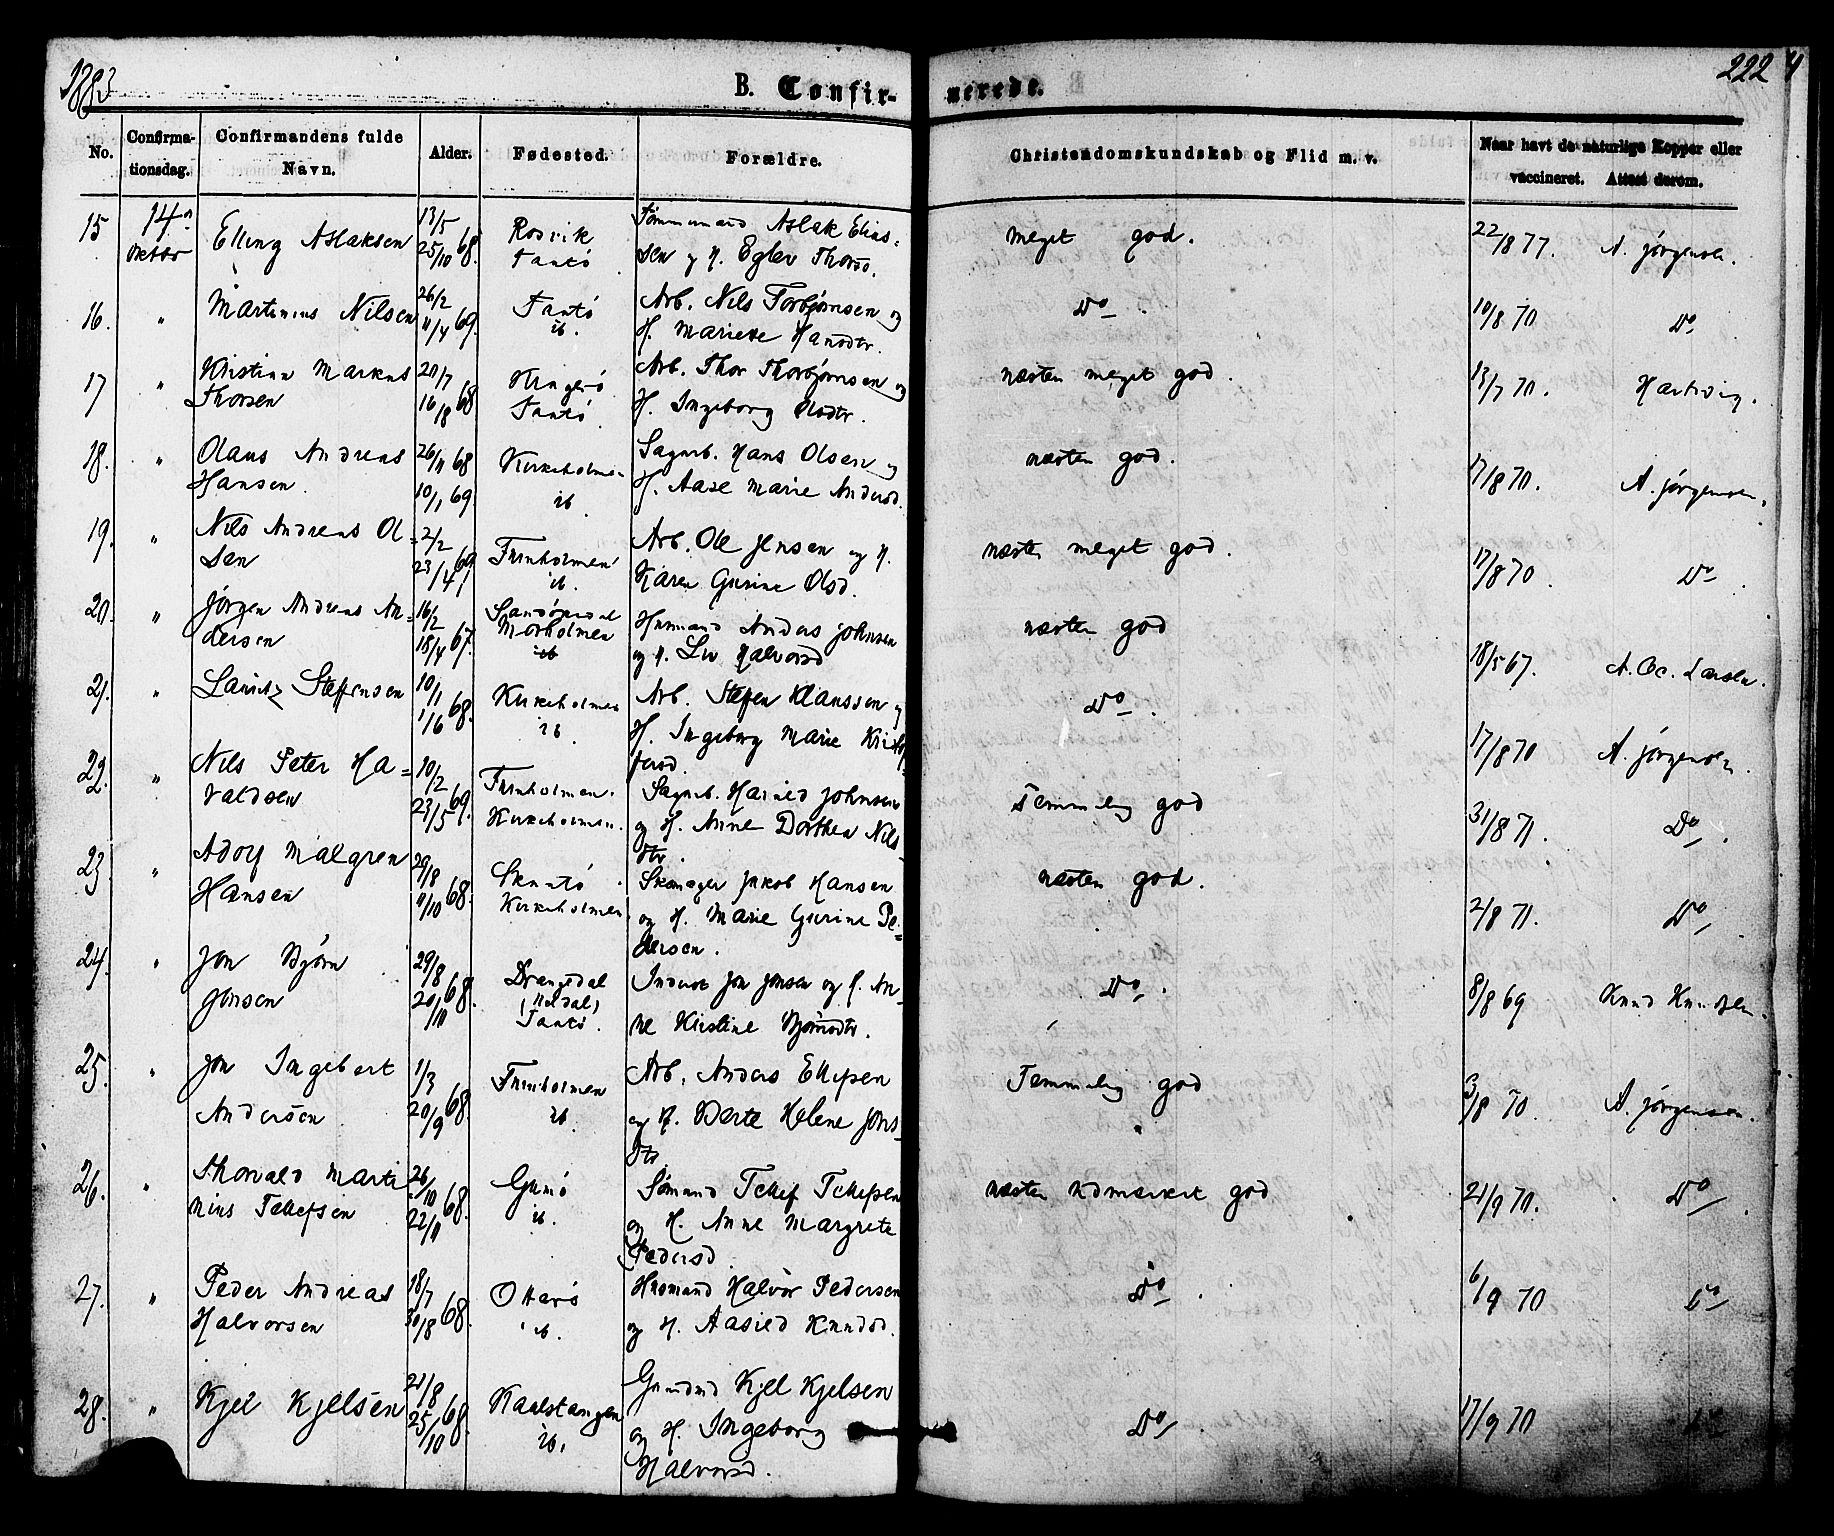 1883
B. Confir-
nerede.
222
No.
Confirma-
tionsdag.
Confirmandens fulde
Navn.
Alder.
Fødested.
Forældre.
Christendomskundskab og Flid m. v.
Naar havt de naturlige Kopper eller
vaccineret. Attest derom.
15 14de 13/5
Oktober Elling Aslaksen 25/10 68. Rosvik
Tåntö Aslak Elias-
sen og H. Eglev Thorsd.
meget god. 22/8 77. A. Jörgensen.
16. " Martinius Nilsen 26/2
11/4 69. Tåntö
ib. Arb. Nils Torbjörnsen og
H. Mariette Hansdtr.
Do 10/8 70 Do
17 " Kristian Markus
Thorsen 20/7
16/8 68 Kragerö
Tåntö Arb. Thor Thorbjörnsen og
H. Ingeborg Olsdtr.
næsten meget god. 13/7 70. Hartvig.
18. " Olaus Andreas
Hansen 26/11 68
10/1 69 Kirkeholmen
ib Sagarb. Hans Olsen og
H. Aase Marie Andersd.
næsten god. 17/8 70. A. Jörgensen.
19. " Nils Andreas Ol-
sen 2/2
23/4 69 Furuholmen
ib. Arb. Ole Jensen og H.
Karen Gurine Olsd.
næsten meget god. 17/8 70. Do
20. " Jörgen Andreas An-
dersen 16/2
18/4 67. Sandökedal
Morholmen
ib Husmand Anders Johnsen
og H. Liv Halvorsd
næsten god 18/5 67. A. Oc. Larsen.
21. " Lauritz Steffensen 10/1
1/6 68. Kirkeholmen
ib. Arb. Steffen Klaussen og
H. Ingeborg Marie Kristof-
fersd.
Do. 17/8 70 A. Jörgensen.
22. " Nils Peter Ha-
valdsen 10/2
23/5 69. Furuholmen.
Kirkeholmen. Sagarb. Johnsen
og H. Anne Dorthea Nils-
dtr.
Temmelig god 31/8 71. Do.
23 " Adolf Malgren
Hansen 29/8
11/10 68. Skåtö
Kirkeholmen Skomager Jakob Hansen
og H. Marie Gurine Pe-
dersen.
næsten god. 2/8 71. Do
24. " Jon Björn
Jonsen 29/8
20/10 68. Drangedal
Tåntö. Inderst Jon Jonsen og H. An-
ne Kirstine Björnsdtr.
Do. 8/8 69 Knud Knudsen.
25. " Jon Ingebert
Andersen 1/3
20/9 68. Furuholmen
ib. Arb. Anders Ellefsen
og H. Berte Helene Jons-
dtr
Temmelig god 3/8 70. A. Jörgensen.
26. " Thorvald Marti
nius Tellefsen 26/10
22/11 68. Gumö
ib. Sömand Tellef Tellefsen
og H. Anne Margrete
Pedersd.
næsten udmærket god 21/9 70. Do
27. " Peder Andreas
Halvorsen 18/7
30/8 68. Ottarö
ib. Husmand Halvor Pedersen
og H. Aasild Knudsd.
Do. 6/9 70 Do
28. " Kjel Kjelsen 21/8
25/10 68. Kaalstangen
ib. Gaardmd Kjel Kjelsen
og H. Ingeborg
Halvorsd.
Do 17/9 70